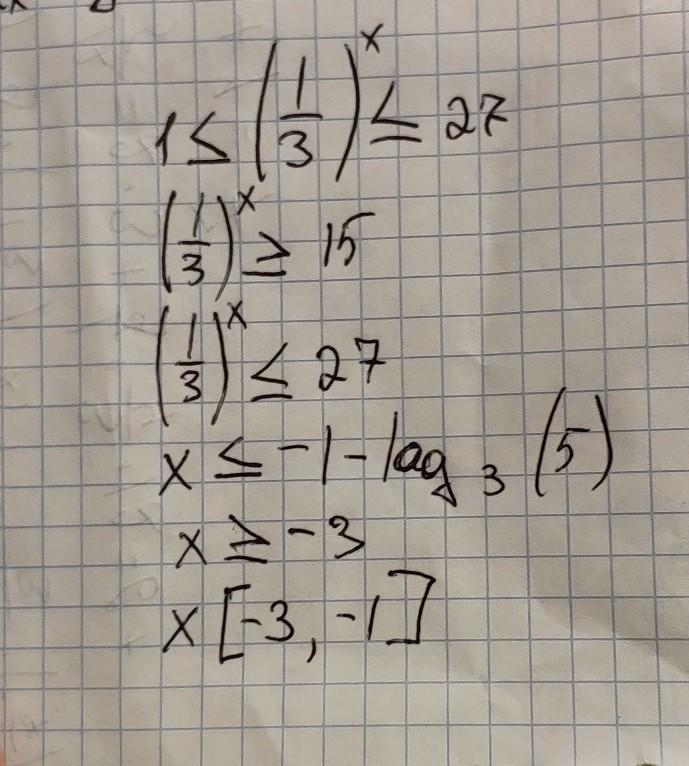 1 ≤ (1/3)^x ≤ 27
(1/3)^x ≥ 15
(1/3)^x ≤ 27
x ≤ -1 - log_3 (5)
x ≥ -3
x [-3, -1]